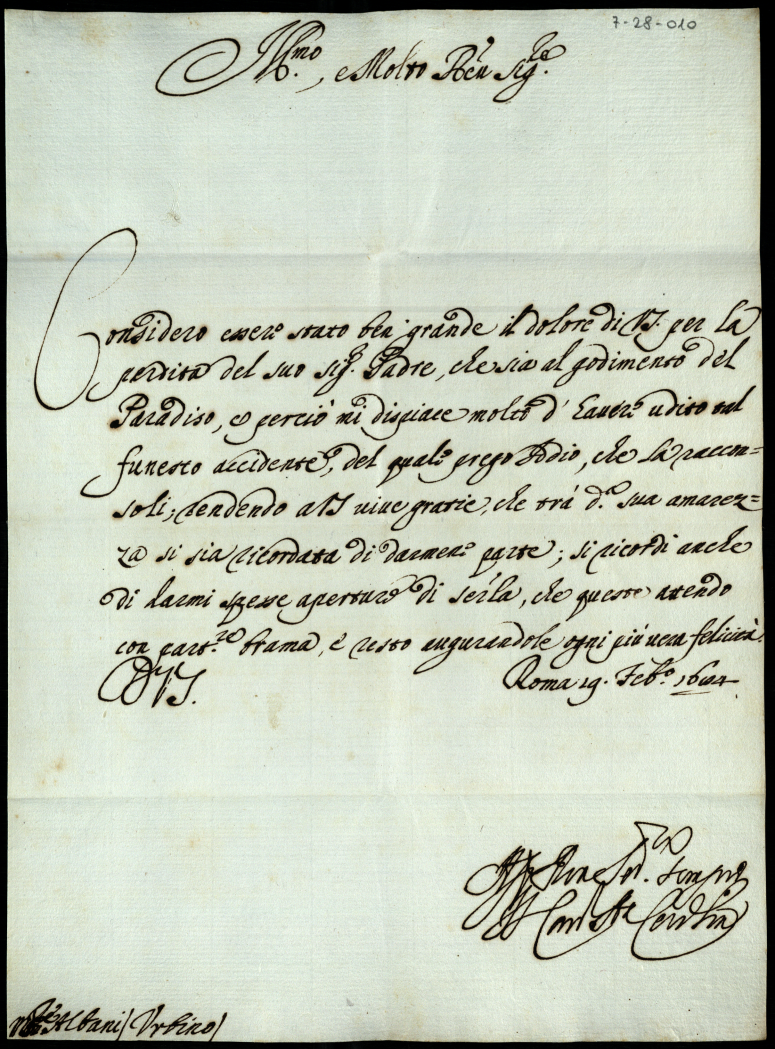 7-28-010
Ill.mo, e Molto Rev. Sig.re
Considero essere stato ben grande il dolore di VS. per la
perdita del suo sig.r Padre, che sia al godimento del
Paradiso, e perciò mi dispiace molto d'haver udito tal
funesto accidente, del quale prego Iddio, che la raccon=
soli; rendendo a VS vive gratie, che trà d.a sua amarez=
za si sia ricordata di darmene parte; si ricordi anche
di darmi spesse aperture di servirla, che queste attendo
con part.re brama, e resto augurandole ogni più vera felicità.
D VS. Roma 19. Feb.o 1684
Ser.re sempre
Albani (Urbino)